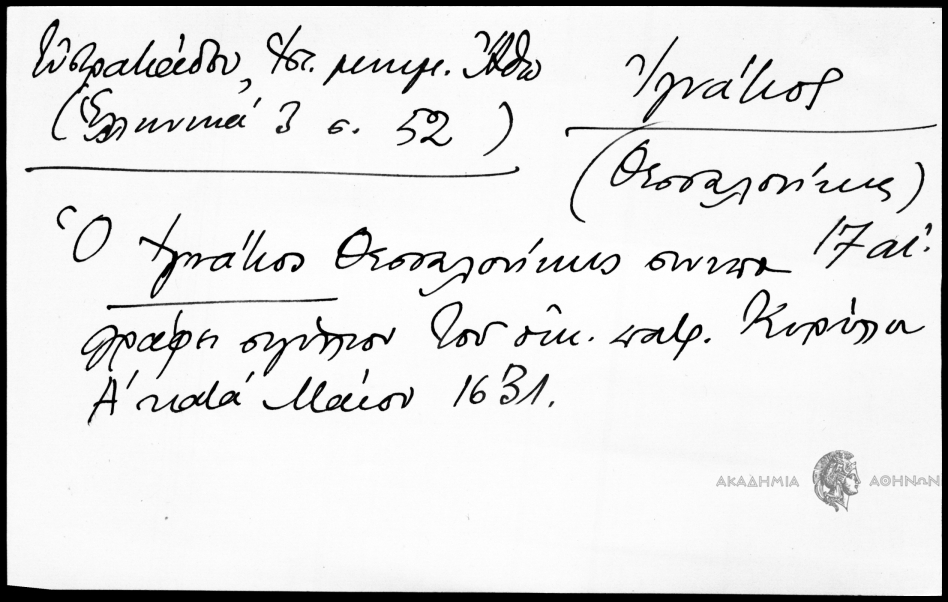 Εὐστρατιάδου, Ἱστ. μνημ. Ἄθω
(Ἑλληνικά 3 σ. 52)
Ἰγνάτιος
(Θεσσαλονίκης)
17 αἰ.
Ὁ Ἰγνάτιος Θεσσαλονίκης συνυπο
γράφει σιγίλλιον τοῦ οἰκ. πατρ. Κυρίλλου
Α΄ κατά Μάϊον 1631.
ΑΚΑΔΗΜΙΑ ΑΘΗΝΩΝ